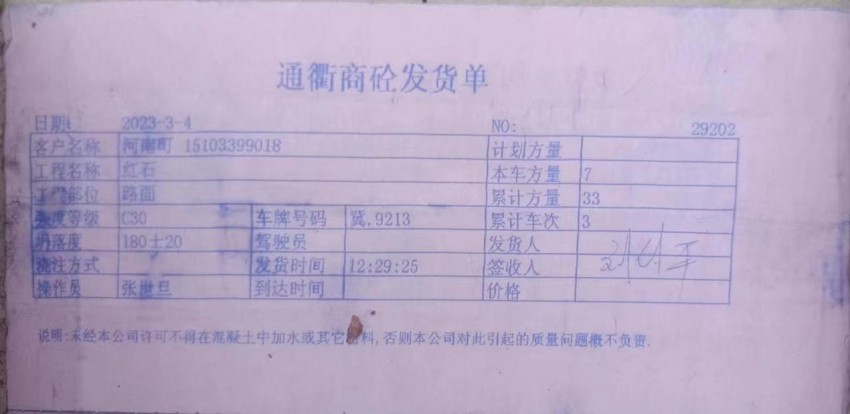 通衢商砼发货单
日期: 2023-3-4 NO: 29202
客户名称 河南町 15103399018 计划方量
工程名称 红石 本车方量 7
工程部位 路面 累计方量 33
强度等级 C30 车牌号码 冀.9213 累计车次 3
坍落度 180士20 驾驶员 发货人
浇注方式 发货时间 12:29:25 签收人
操作员 张世旦 到达时间 价格
说明:未经本公司许可不得在混凝土中加水或其它材料,否则本公司对此引起的质量问题概不负责.